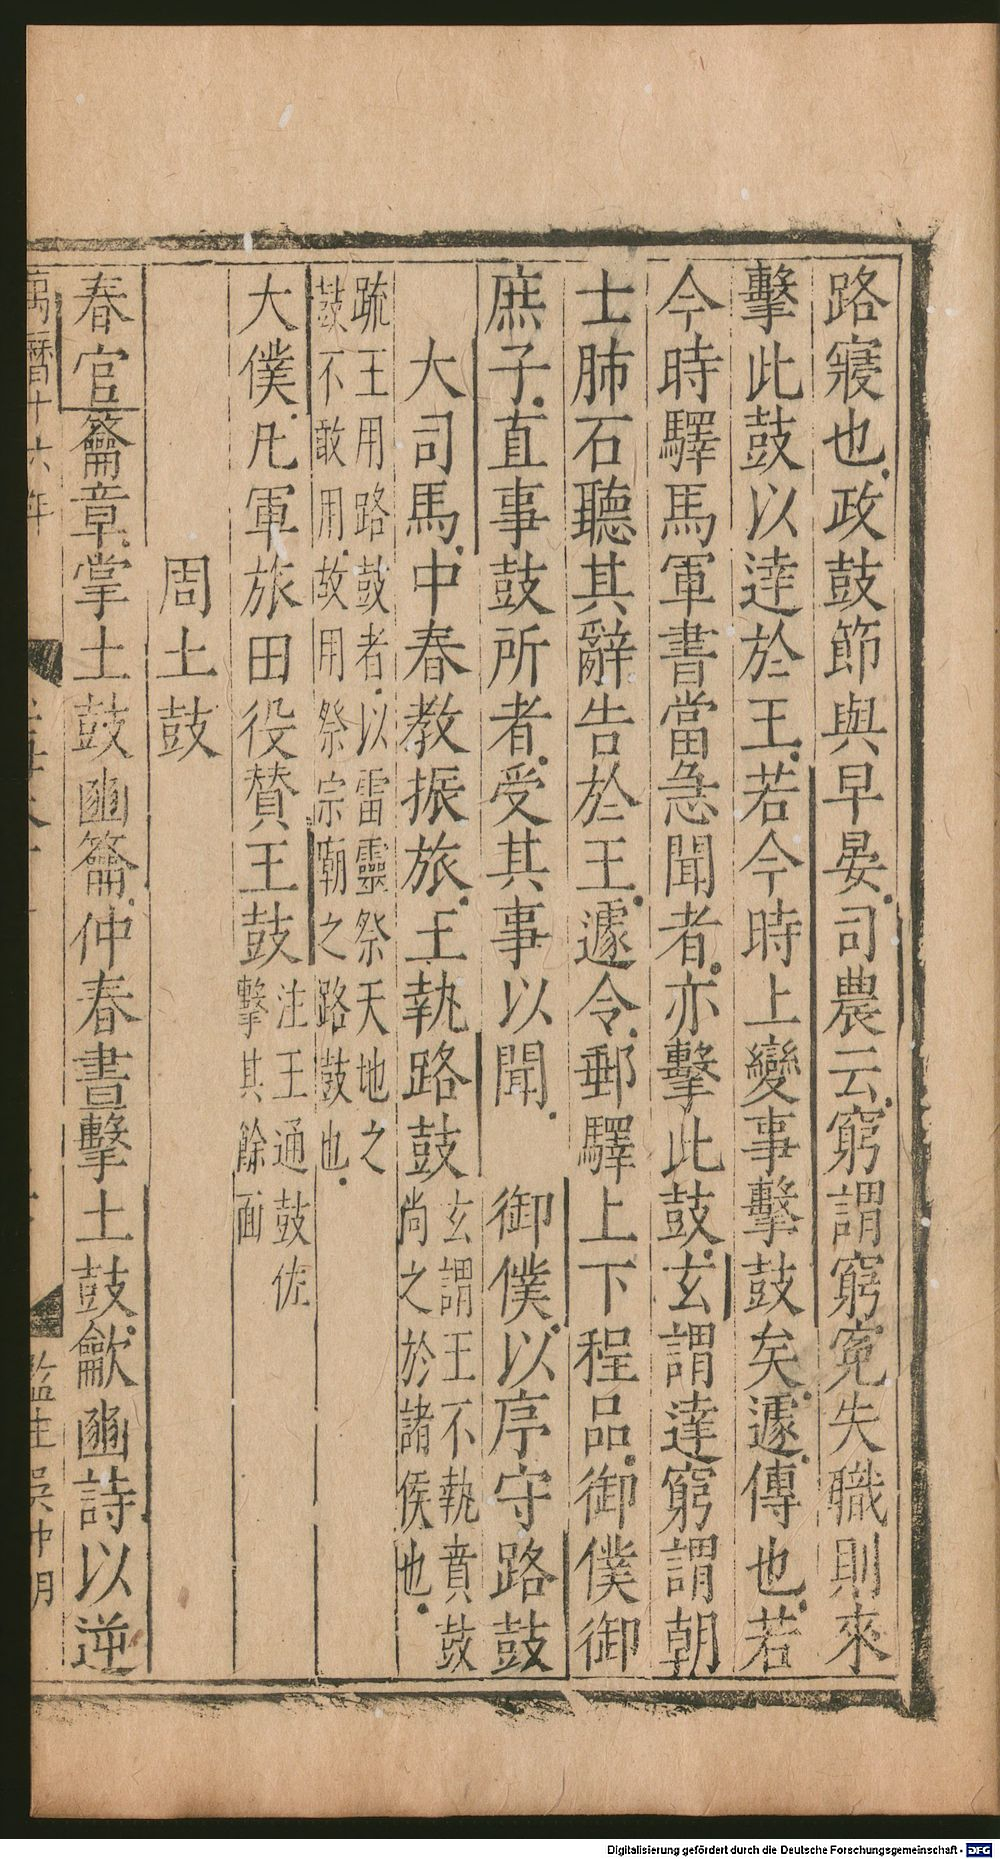 路寢也政鼓節與早晏司農云窮謂窮寃失職則來
擊此鼓以達於王若今時上變事擊鼓矣遽傳也若
今時驛馬軍書當急聞者亦擊此鼓玄謂達窮謂朝
士肺石聽其辭告於王遽令郵驛上下程品御僕御
庶子直事鼓所者受其事以聞　御僕以序守路鼓
大司馬中春教振旅王執路鼓
玄謂王不執賁鼓
尚之於諸侯也
疏王用路鼓者以雷靈祭天地之
鼓不敢用故用祭宗廟之路鼓也
大僕凡軍旅田役賛王鼓
注王通鼓佐
擊其餘面
周土鼓
春官籥章掌土鼓豳籥仲春晝擊土鼓龡豳詩以逆
萬曆十六年
監生吳仲明
Digitalisierung gefördert durch die Deutsche Forschungsgemeinschaft - DFG